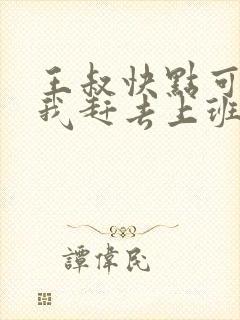 王叔快點可
我赶去上班
譚偉民